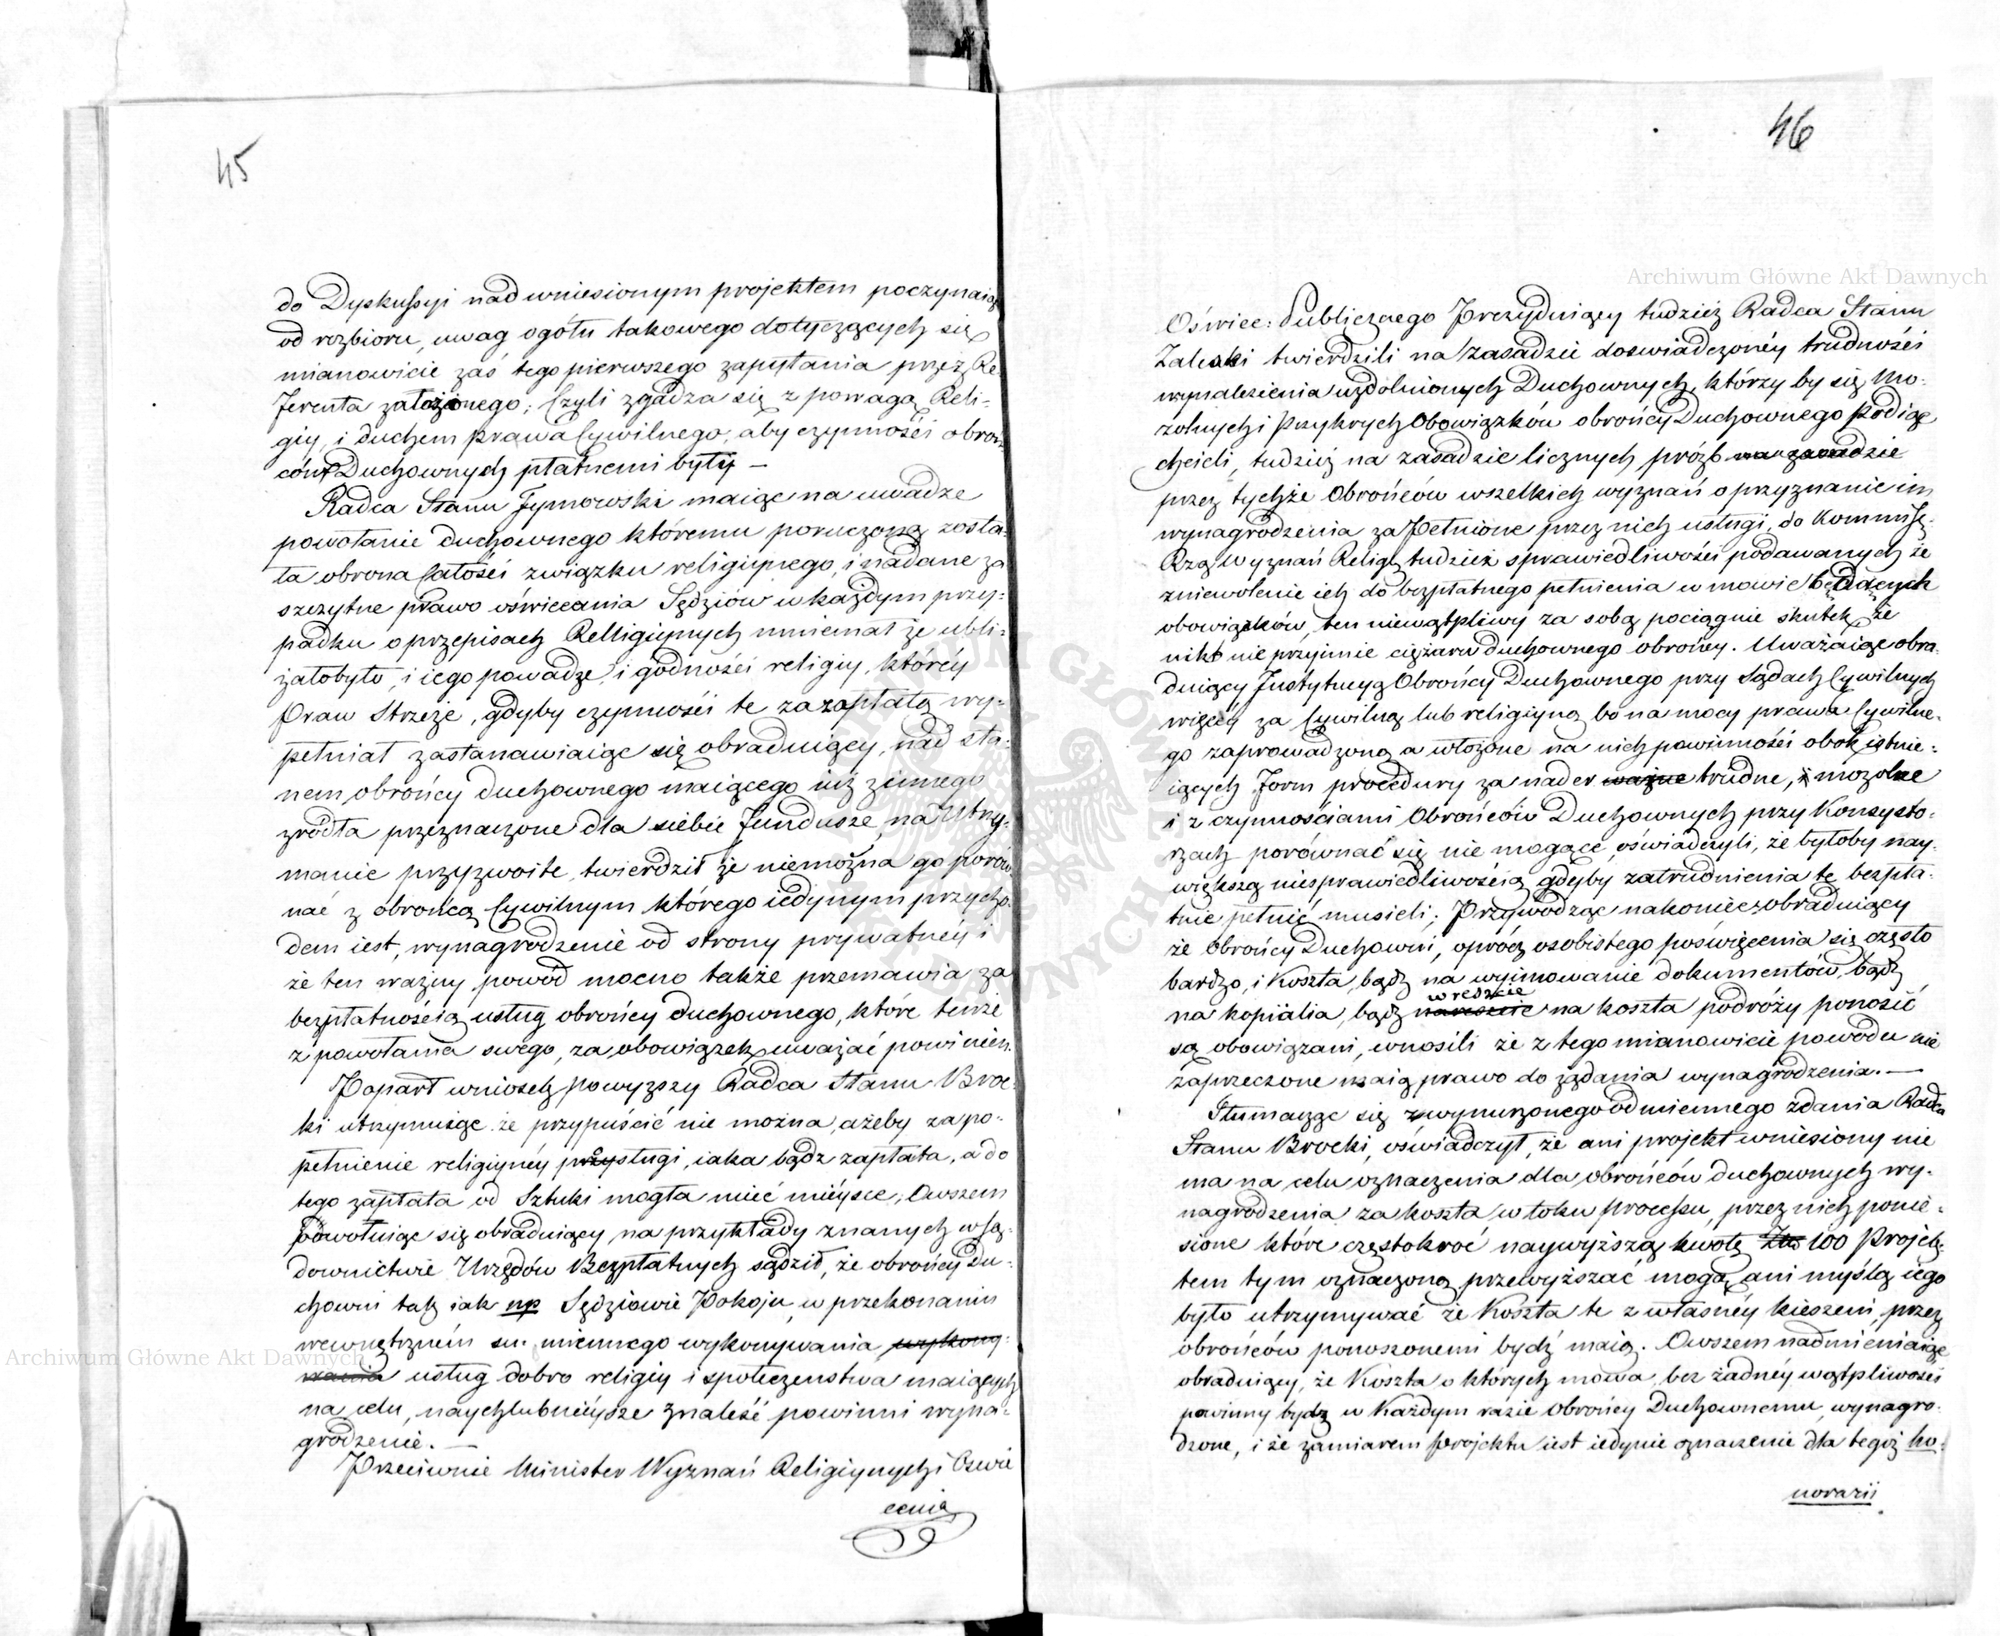 45
do Dyskussyi nad wniesionym projektem poczynaiąc
od rozbioru, uwag ogółu takowego dotyczących się
mianowicie zaś tego pierwszego zapytania przez Re-
ferenta założonego; Czyli zgadza się z powagą Reli-
giy, i duchem prawa Cywilnego, aby czynności obroń-
ców Duchownych płatnemi były —
Radca Stanu Tymowski maiąc na uwadze
powołanie duchownego któremu poruczoną zosta-
ła obrona całości związku religiynego, i nadane za-
szczytne prawo oświecania Sędziów w każdym przy-
padku o przepisach Relligiynych mniemał że ubli-
żałoby to, i iego powadze, i godności religiy, któréy
Praw Strzeże, gdyby czynności te za zapłatą wy-
pełniał zastanawiaiąc się obraduiący, nad sta-
nem obrońcy duchownego maiącego iuż z innego
źródła przeznaczone dla siebie fundusze, na Utrzy-
manie przyzwoite, twierdził że niemożna go porów-
nać z obrońcą Cywilnym którego iedynym przycho-
dem iest, wynagrodzenie od strony prywatnéy i
że ten ważny powód mocno także przemawia za
bezpłatnością usług obrońcy duchownego, które tenże
z powołania swego, za obowiązek uważać powinien.
Poparł wniosek powyższy Radca Stanu Broc-
ki utrzymuiąc że przypuścić nie można, ażeby za po-
pełnienie religiynéy przysługi, iaka bądź zapłata, a do
tego zapłata od Sztuki mogła mieć mieysce; Owszem
powołuiąc się obraduiący na przykłady znanych w Są-
downictwie Urzędów Bezpłatnych sądził, że obrońcy Du-
chowni tak iak np Sędziowie Pokoju, w przekonaniu
wewnętrzném sumiennego wykonywania wykony-
wania usług dobro religiy i społeczeństwa maiących
na celu, naychlubnieysze znaleść powinni wyna-
grodzenie. —
Przeciwnie Minister Wyznań Religiynych i Oświe
cenia
46
Oświec: Publicznego Prezyduiący tudzież Radca Stanu
Zaleski twierdzili na zasadzie doświadczonéy trudności
wynalezienia uzdolnionych Duchownych, którzy by się mo-
zolnych i przykrych obowiązków obrońcy Duchownego podiąć
chcieli, tudzież na zasadzie licznych próźb na zasadzie
przez tychże Obrońców wszelkich wyznań o przyznanie im
wynagrodzenia za pełnione przez nich usługi, do Kommissy
Rzą: Wyznań Relig: tudzież sprawiedliwości podawanych że
zniewolenie ich do bezpłatnego pełnienia w mowie będących
obowiązków, ten niewątpliwy za sobą pociągnie skutek, że
nikt nie przyimie ciężaru duchownego obrońcy. Uważaiąc obra-
duiący Instytucyą Obrońcy Duchownego przy Sądach Cywilnych
więcéy za Cywilną lub religiyną bo na mocy prawa Cywilne-
go zaprowadzoną a włożone na nich powinności obok istnie-
iących form procedury za nader ważne trudne, i mozolne
i z czynnościami Obrońców Duchownych przy Konsysto-
rzach porównać się nie mogące, oświadczyli, że byłoby nay-
większą niesprawiedliwością gdyby zatrudnienia te bezpła-
tnie pełnić musieli; Przywodząc nakoniec obraduiący
że Obrońcy Duchowni, oprócz osobistego poświęcenia się często
bardzo, i Koszta, bądź na wyimowanie dokumentów, bądź
na kopialia, bądź nareszcie wreszcie na koszta podróży ponosić
są obowiązani, wnosili że z tego mianowicie powodu nie
zaprzeczone maią prawo do żądania wynagrodzenia. —
Tłumacząc się z wynurzonego odmiennego zdania Radca
Stanu Brocki, oświadczył, że ani projekt wniesiony nie
ma na celu oznaczenia dla obrońców duchownych wy-
nagrodzenia za koszta w toku processu, przez nich ponie-
sione które częstokroć naywyższą kwotę Złp 100 Projek-
tem tym oznaczoną przewyższać mogą, ani myślą iego
było utrzymywać że Koszta te z własnéy kieszeni, przez
obrońców ponoszonemi bydź maią. Owszem nadmieniaiąc
obraduiący, że Koszta o których mowa, bez żadnéy wątpliwości
powinny bydz w każdym razie Obrońcy Duchownemu, wynagro-
dzone, i że zamiarem projektu iest iedynie oznaczenie dla tegoż ho-
norarii
Archiwum Główne Akt Dawnych
Archiwum Główne Akt Dawnych